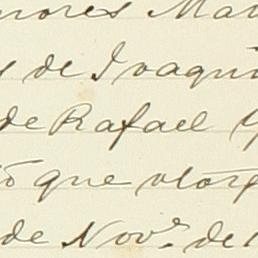 nores Ma
de Joaqui
de Rafael
que otorg
de Nov.e de